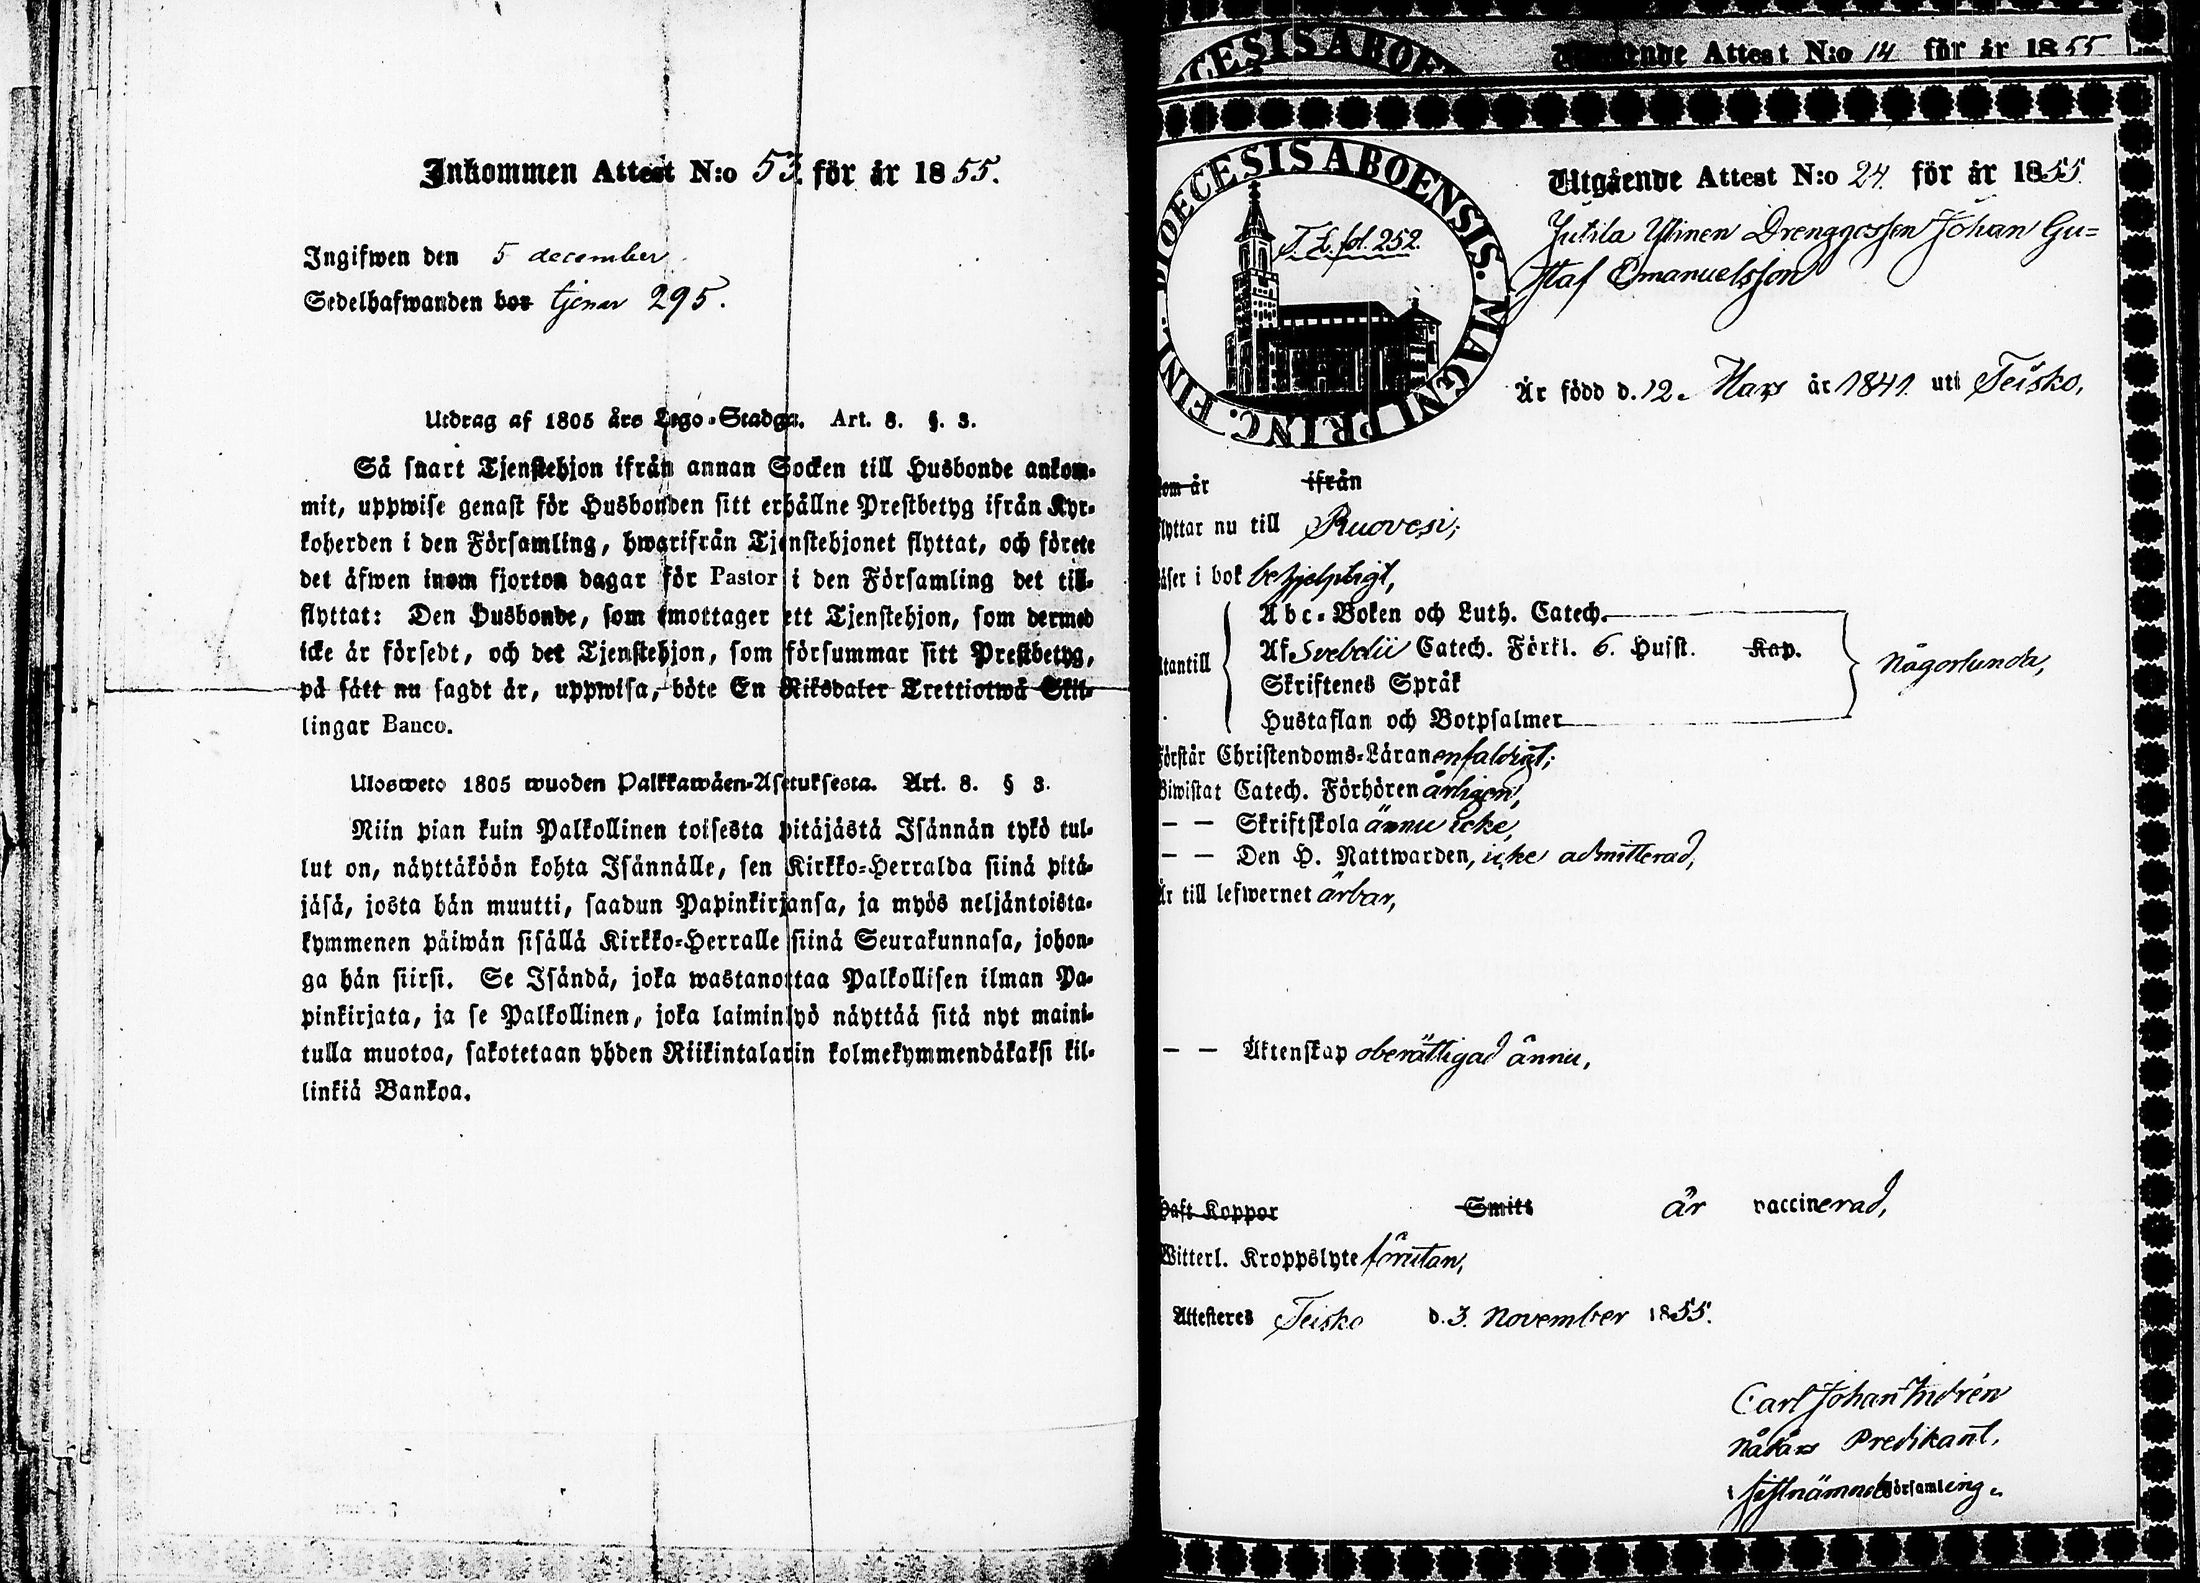 Inkommen Attest N:o 53. för år 1855.
Ingifwen den 5 december
Sedelhafwanden bor tjenar 295.
Utdrag af 1805 års Lego-Stadga. Art. 8. §. 3.
Så snart Tjenstehjon ifrån annan Socken till Husbonde ankom-
mit, uppwise genast för Husbonden sitt erhållne Prestbetyg ifrån Kyr-
koherden i den Församling, hwarifrån Tjenstehjonet flyttat, och förete
det äfwen inom fjorton dagar för Pastor i den Församling det till-
flyttat: Den Husbonde, som emottager ett Tjenstehjon, som dermed
icke är försedt, och det Tjenstehjon, som försummar sitt Prestbetyg,
på sätt nu sagdt är, uppwisa, böte En Riksdaler Trettiotwå Skil-
lingar Banco.
Ulosweto 1805 wuoden Palkkawäen-Asetuksesta. Art. 8. § 3.
Niin pian kuin Palkollinen toisesta pitäjästä Isännän tykö tul-
lut on, näyttäköön kohta Isännälle, sen Kirkko-Herralda siinä pitä-
jäsä, josta hän muutti, saadun Papinkirjansa, ja myös neljäntoista-
kymmenen päiwän sisällä Kirkko-Herralle siinä Seurakunnasa, johon-
ga hän siirsi. Se Isändä, joka wastanottaa Palkollisen ilman Pa-
pinkirjata, ja se Palkollinen, joka laiminlyö näyttää sitä nyt maini-
tulla muotoa, sakotetaan yhden Riikintalarin kolmekymmendäkaksi kil-
linkiä Bankoa.
CESIS ABOE
Utgående Attest N:o 14 för år 1855
DIOECESIS ABOENSIS. MAGNI PRINC. FINL.
T. L. fol. 252.
Utgående Attest N:o 24. för år 1855.
Jutila Ylinen Drenggossen Johan Gu=
staf Emanuelsson
Är född d. 12. Mars år 1841. uti Teisko,
som är ifrån
flyttar nu till Ruovesi;
läser i bok behjelpligt,
Utantill
Abc-Boken och Luth. Catech.
Af Svebelii Catech. Förkl. 6. Husst. Kap.
Skriftenes Språk
Hustaflan och Botpsalmer
någorlunda,
Förstår Christendoms-Läran enfaldigt;
Biwistat Catech. Förhören årligen,
— — Skriftskola ännu icke,
— — Den H. Nattwarden, icke admitterad,
Är till lefwernet ärbar,
— — Äktenskap oberättigad ännu,
Haft Koppor Smitt är vaccinerad,
Witterl. Kroppslyte förutan,
Attesteres Teisko d. 3. November 1855.
Carl Johan Indrén
Nådårs Predikant,
i sistnämnde Församling.